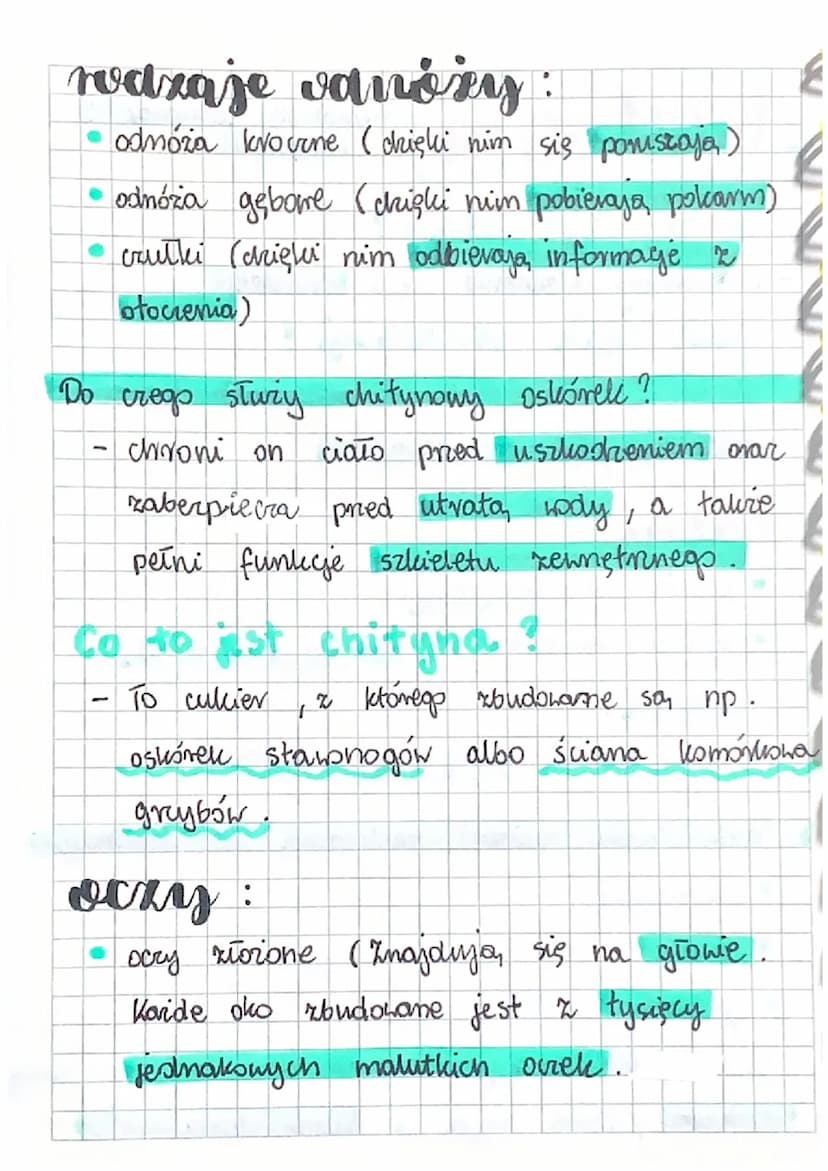 rodzaje odnóży:
• odnóża kroczne (dzięki nim się poruszają)
• odnóża gębowe (dzięki nim pobierają pokarm)
• czułki (dzięki nim odbierają informacje z
otoczenia)
Do czego służy chitynowy oskórek?
- chroni on ciało przed uszkodzeniem oraz
zabezpiecza przed utratą wody, a także
pełni funkcje szkieletu zewnętrznego.
Co to jest chityna?
- To cukier, z którego zbudowane są np.
oskórek stawonogów albo ściana komórkowa
grzybów.
oczy:
• oczy złożone (Znajdują się na głowie.
Każde oko zbudowane jest z tysięcy
jednakowych malutkich oczek.